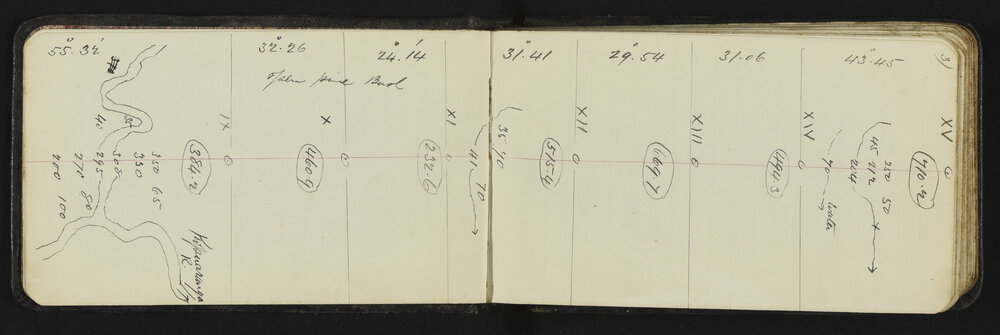 55°.32' 32°.26 24°.14' 31°.41 29°.54 31.06 43°.45 3)
open Bush
IX X XI XII XIII XIV XV
384.2 460.9 232.6 515.4 669.7 494.3 710.2
30
40
350 65
330
308
295
270 80
200 100
35 40
41 70
70 water
250 50
212
204
45
R.